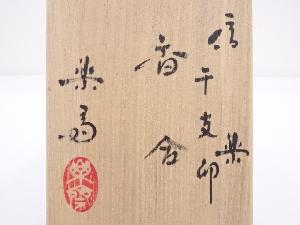 信楽
干支卯
香合
楽斎